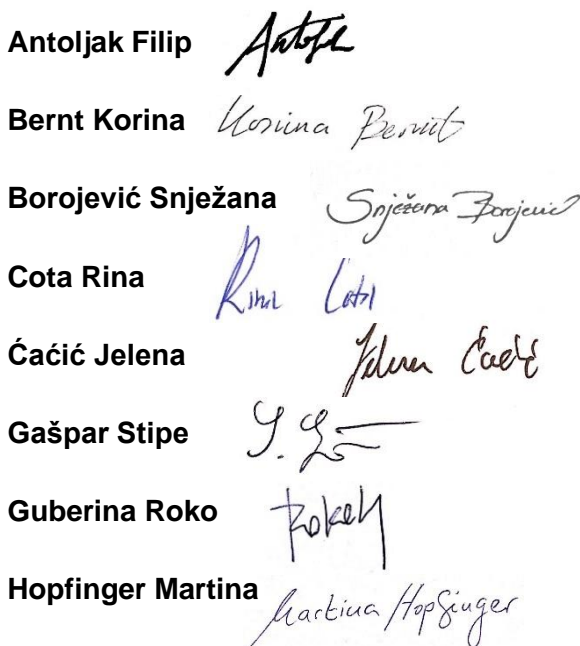 Antoljak Filip Antolj
Bernt Korina Korina Bernt
Borojević Snježana Snježana Borojević
Cota Rina Rina Cota
Ćaćić Jelena Jelena Ćaćić
Gašpar Stipe S.
Guberina Roko
Hopfinger Martina Martina Hopfinger